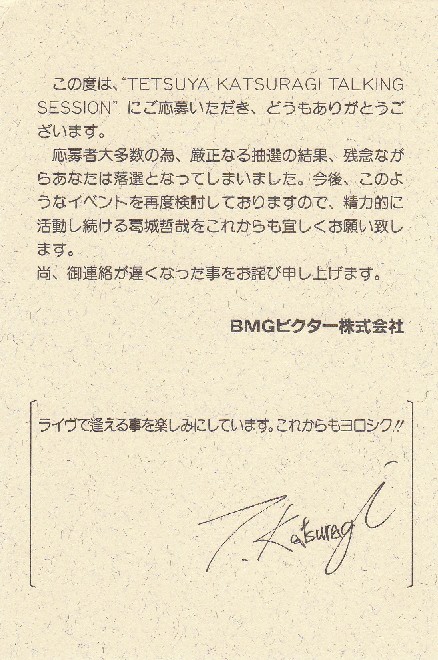 この度は、“TETSUYA KATSURAGI TALKING
SESSION”にご応募いただき、どうもありがとうご
ざいます。
応募者大多数の為、厳正なる抽選の結果、残念なが
らあなたは落選となってしまいました。今後、このよ
うなイベントを再度検討しておりますので、精力的に
活動し続ける葛城哲哉をこれからも宜しくお願い致し
ます。
尚、御連絡が遅くなった事をお詫び申し上げます。
BMGビクター株式会社
ライヴで逢える事を楽しみにしています。これからもヨロシク!!
T. Katsuragi